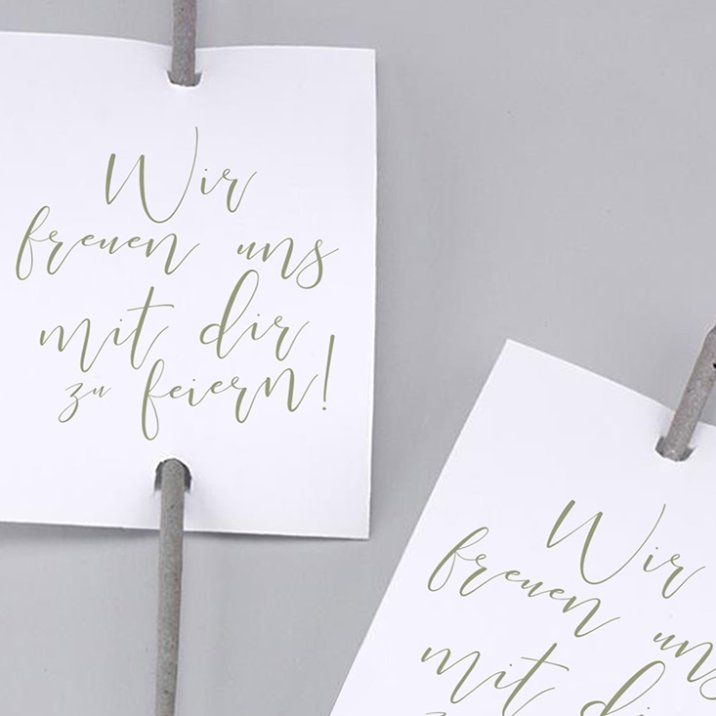 Wir
freuen uns
mit dir
zu feiern!
Wir
freuen uns
mit dir